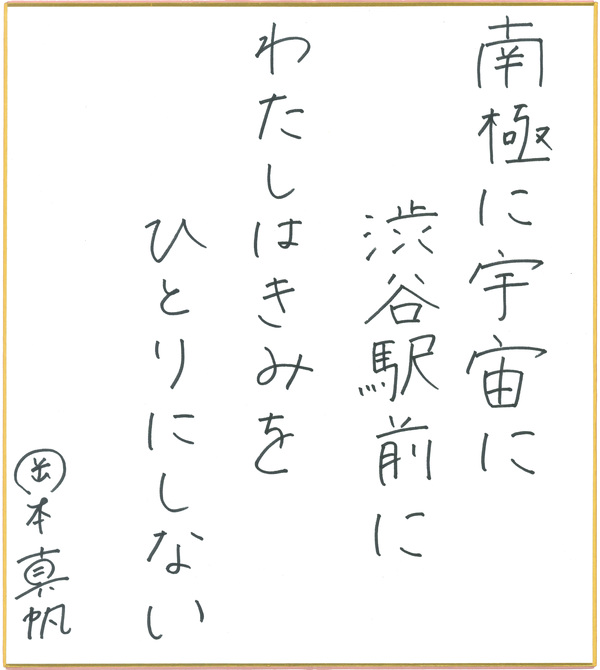 南極に宇宙に
渋谷駅前に
わたしはきみを
ひとりにしない
岡本真帆